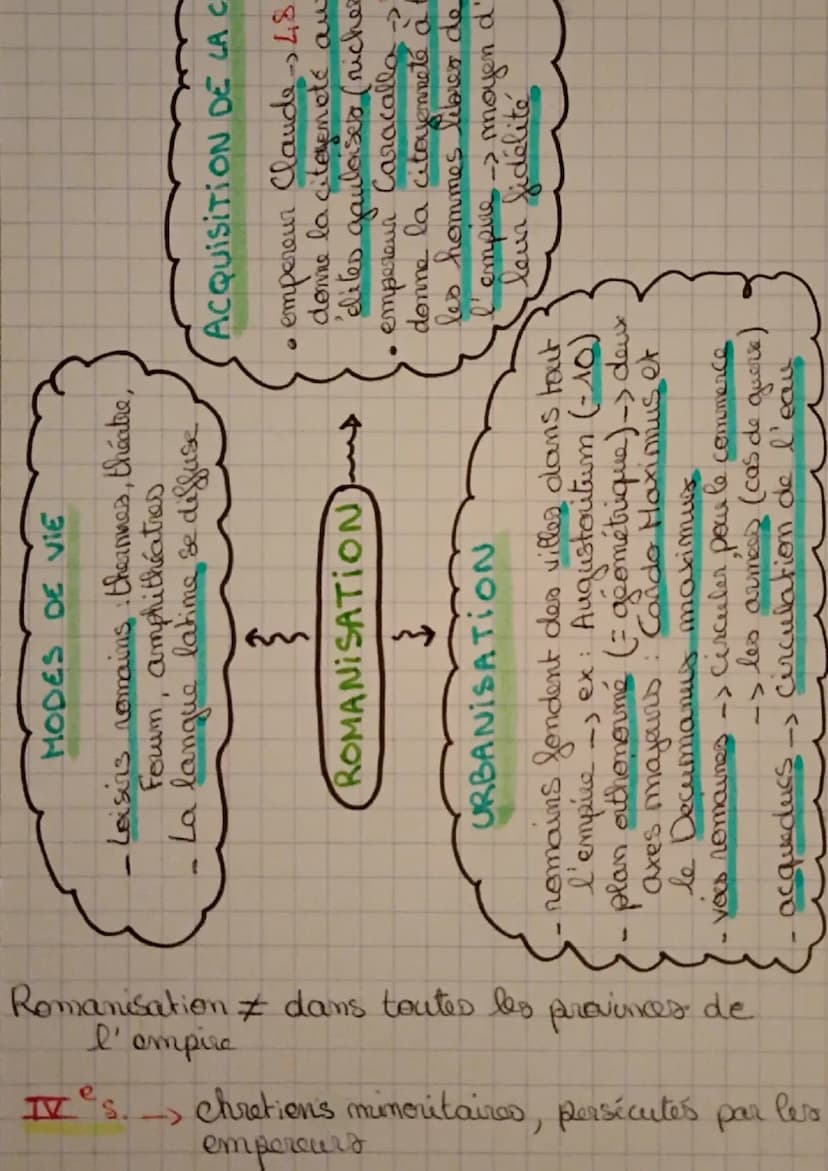 MODES DE VIE
- Loisirs romains : thermes, théatre,
Forum, amphithéatres
- La langue latine se diffuse
ROMANISATION
ACQUISITION DE LA C
• empereur Claude -> 48
donne la citoyenneté au
élites gauloises (riche
• empereur Caracalla ->
donne la citoyenneté à
les hommes libres de
l'empire -> moyen d'
leur fidélité
URBANISATION
- romains fondent des villes dans tout
l'empire -> ex : Augustoritum (-10)
- plan orthonormé (= géométrique) -> deux
axes majeurs : Cardo Maximus et
le Decumanus maximus
- voies romaines -> circuler pour le commerce
-> les armées (cas de guerre)
- acqueducs -> circulation de l'eau
Romanisation ≠ dans toutes les provinces de
l'empire
IVe s. -> chretiens minoritaires, persécutés par les
empereurs